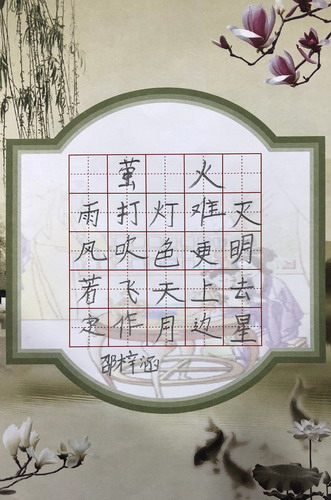 萤火
雨打灯难灭
风吹色更明
若飞天上去
定作月边星
邵梓涵